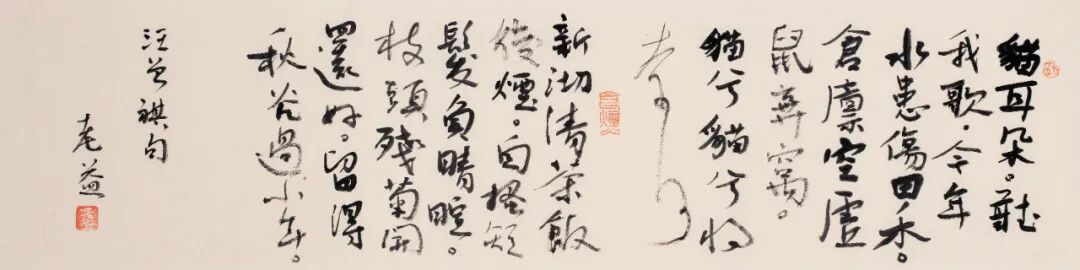 貓耳朵。聽
我歌.今年
水患傷田禾。
倉廩空虛
鼠棄窩。
貓兮貓兮將
奈何
新沏清茶飯
後煙。自搔短
髮負晴暄。
枝頭殘菊開
還好。留得
秋光過小年。
汪曾祺句
老益